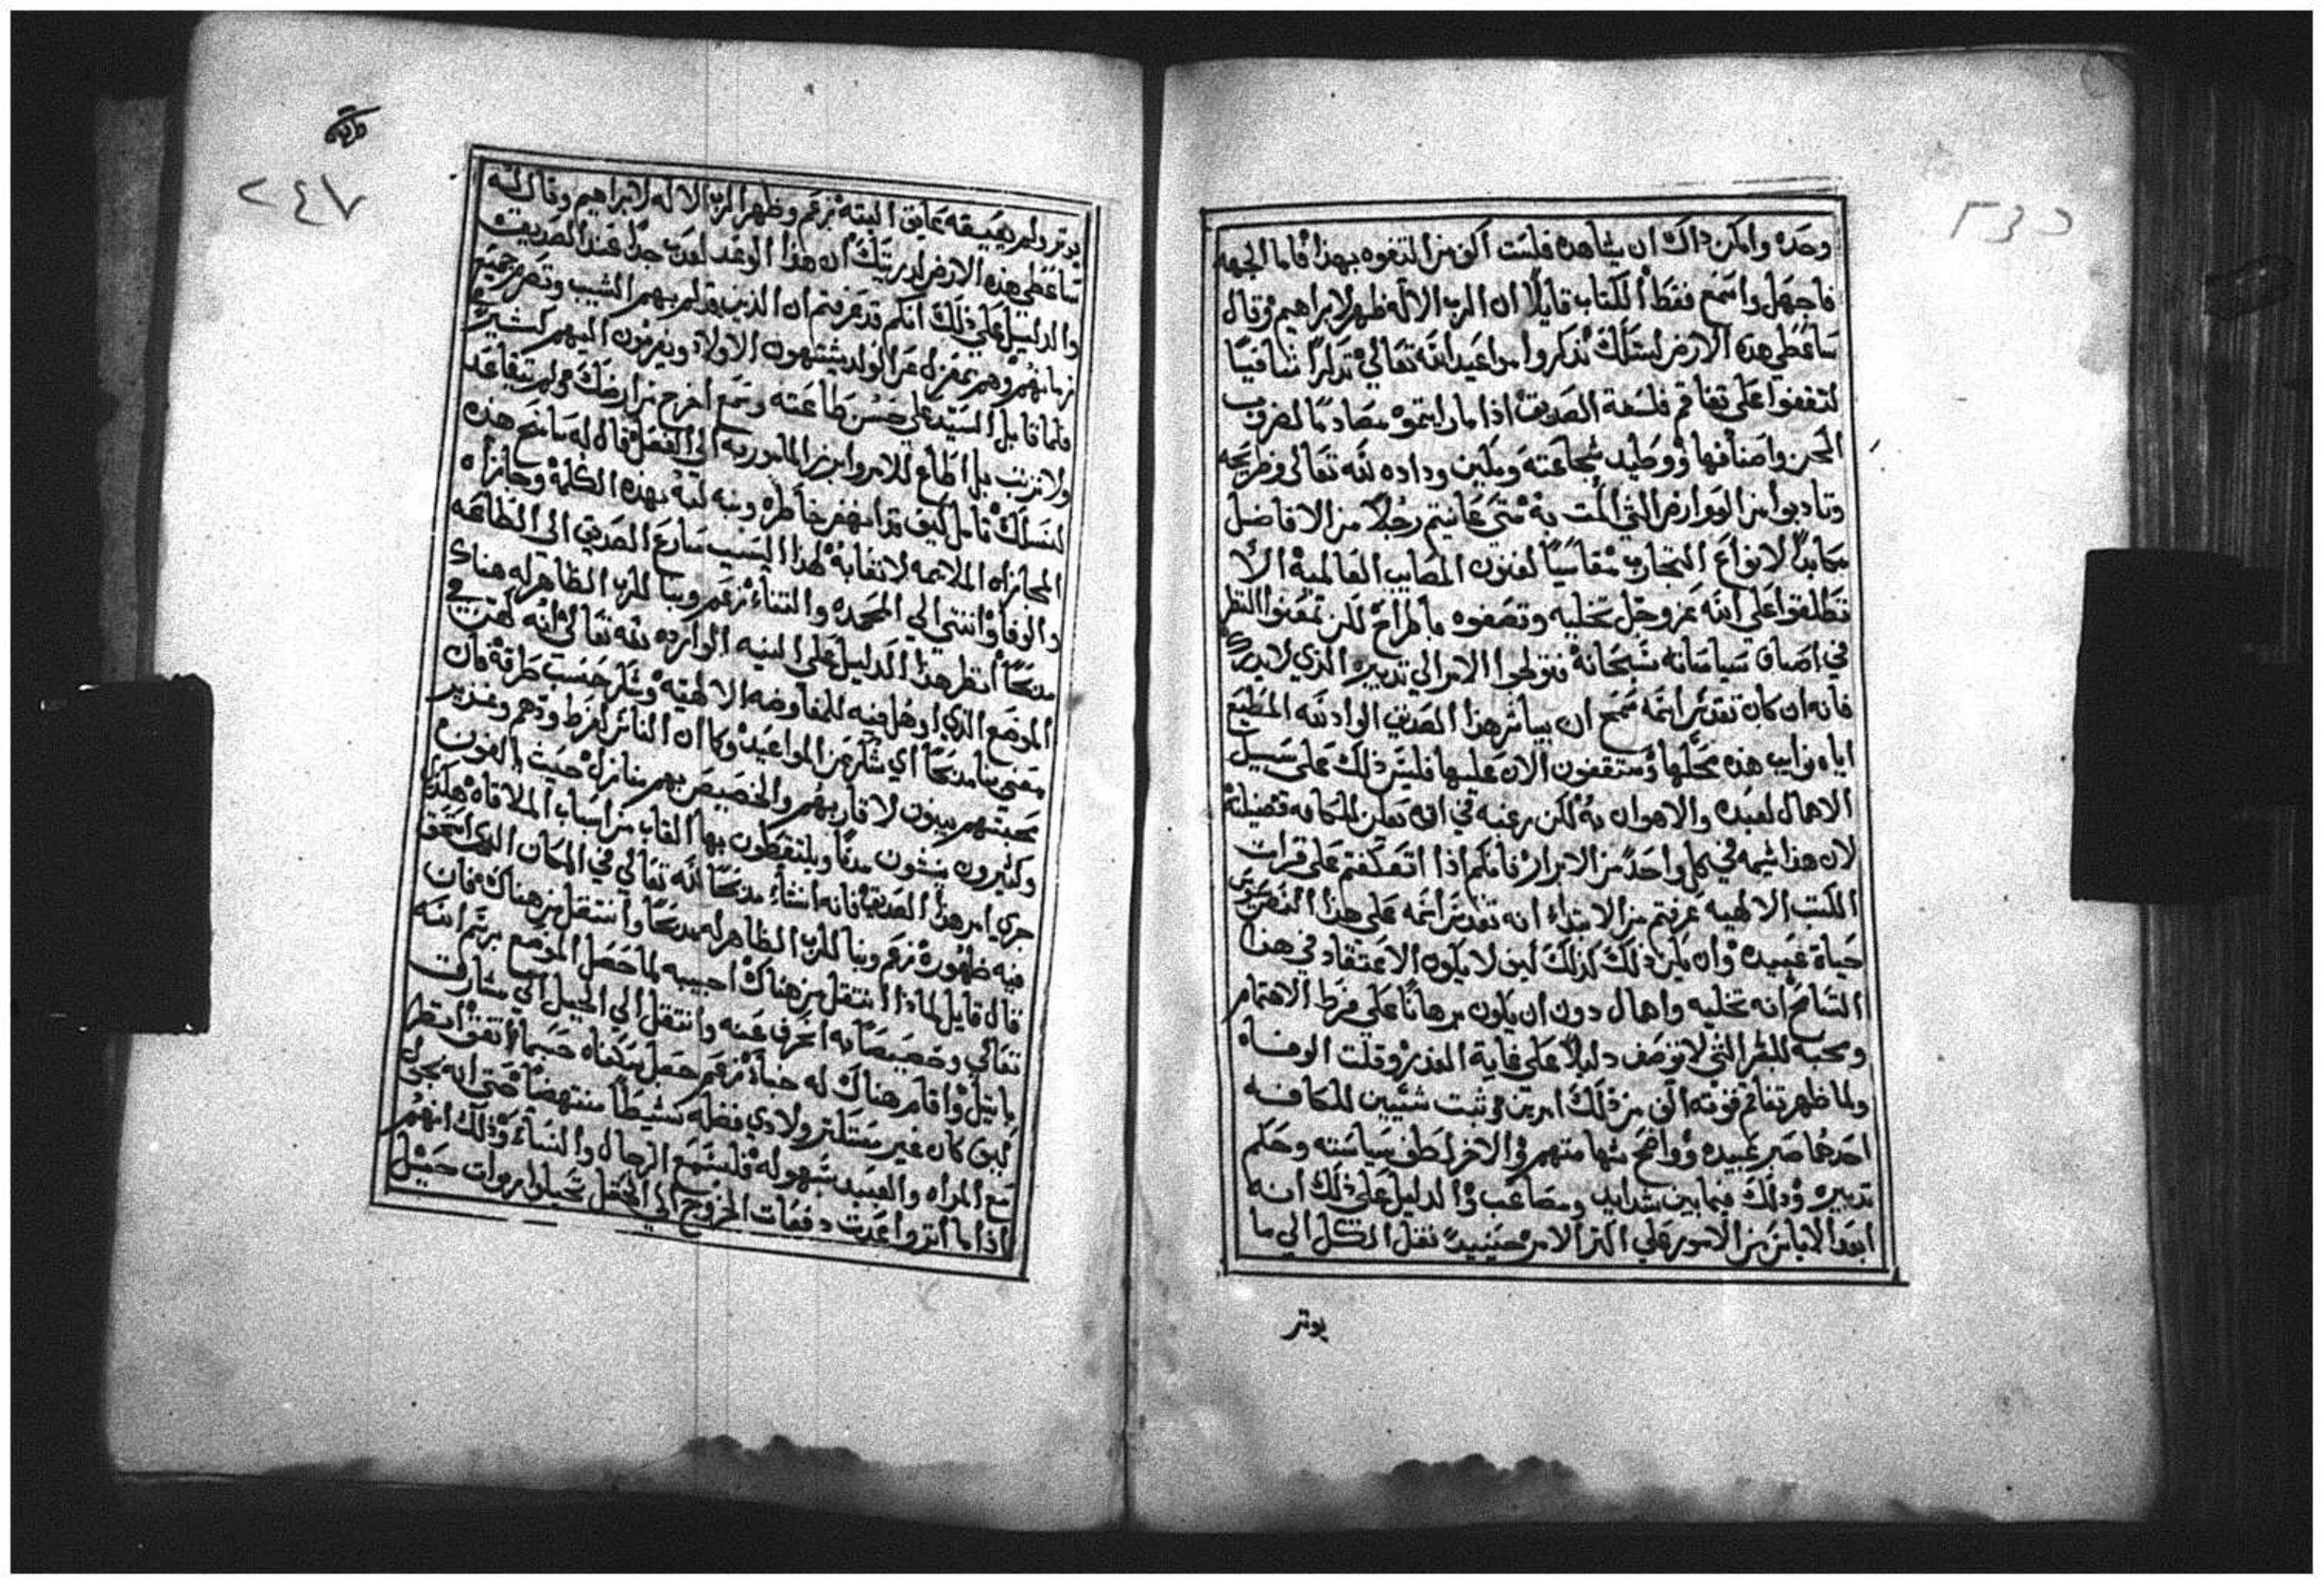 وحده وامكن داك ان يشاهده فلست اكف من التفوه بهذا فاما الجهه
فاجهل واسمع فقط الكتاب قايلاً ان الرب الاله ظهر لابراهيم وقال
ساعطي هذه الارض لنسلك تذكروا مواعيد الله تعالي تذكراً شافياً
لتقفوا علي تفاقم فلسفة الصديق اذا ما رايتموه مصادماً لضروب
المحن واصنافها ووطيد شجاعته ومكين وداده لله تعالى وطريحه
وتادبوا من العوارض التي المت به متي عاينتم رجلاً من الافاضل
مكابداً لانواع التجارب مقاسياً لفنون المصايب العالمية الا
تطلقوا علي الله عز وجل تخليه وتصفوه باطراح لكن تمعنوا النظر
في اصناف سياساته سبحانه فتولجوا الامر الي تدبيره الذي لايدرك
فانه ان كان تقدس اسمه سمح ان يباشر هذا الصديق الواد لله المطيع
اياه نوايب هذه محلها وستقفون الان عليها فليس ذلك علي سبيل
الاهمال لعبده والاهوان به لكن رغبه في ان يعلن للكافه فضيلته
لان هذا شيمه في كل واحد من الابرار فانكم اذا اتعكفتم علي قرات
الكتب الالهيه عرفتم من الابتداء انه تقدس اسمه علي هذا النص يدبر
حياة عبيده وان يكن ذلك كذلك كيف لا يكون الاعتقاد في هذا
التسامح انه تخليه واهمال دون ان يكون برهاناً علي فرط الاهتمام
ومحبه للبشر التي لا توصف دليلاً علي غاية الغدر وقلت الوفاء
ولما ظهر تفاقم قوته الف من ذلك امرين و ثبت شييين للكافه
احدهما صبر عبيده وواضح شهامتهم والاخر لطف سياسته وحكم
تدبيره وذلك فيما بين شدايد ومصاعب والدليل علي ذلك انه
ابعد الاياس من الامور علي اكثر الامر حينيذ نقل الكل الي ما
يوتر
٢٤٧
يوتر ولم يعيقه عايق البته زعم وظهر الرب الاله لابراهيم وقال له
ساعطي هذه الارض لذريتك ان هذا الوعد لعذب جداً عند الصديق
والدليل علي ذلك انكم قد عرفتم ان الذين قد لم بهم الشيب وتصرم جميع
زمانهم وهم بمعزل عن الولد يشتهون الاولاد ويرمون اليهم كثيراً
فلما قابل السيد علي حسن طاعته وسمع اخرج من ارضك ولم يتقاعد
ولا تزيث بل اطاع للامر وابرز المامور به الي الفعل قال له سامنح هذه
لنسلك تامل كيف قد انهض خاطره ونبه لبه بهذه الكلمة وجازاه
المجازاه الملايمه لاتعابه لهذا السبب سارع الصديق الى الطاعه
والوفا وانتني الي المحمده والثناء زعم وبنا للرب الظاهر له هناك
مذبحاً انظر هذا الدليل علي النيه الوارده لله تعالي انه لهرب في
الموضع الذي اوهل فيه للمفاوضه الالهيه وشكر حسب طاقة كان
معني بنا مذبحاً اي شكر عن المواعيد وكما ان الناس لفرط ودهم وغزير
محبتهم يبنون لاقاربهم والخصيص بهم منازل حيث يالفون
وكثيرون ينشون مدناً ويلتقطون بها القاب من اسباب الملاقاه هكذا
جري امر هذا الصديق فانه انشاء مذبحاً لله تعالي في المكان الذي استحق
فيه ظهوره زعم وبنا للرب الظاهر له مذبحاً وانتقل من هناك فان
قال قايل لماذا انتقل من هناك اجيبه لما حصل الموضع برسم الله
تعالي وخصيصاً به انحرف عنه وانتقل الي الجبل الي مشارق
بايتيل واقام هناك له خباء زعم حصل سكناه حسبما اتفق انظر
كيف كان غير معتلق ولا ذي فضله نشيطاً منتهضاً حتى انه يحول
مع المراه والعبيد بسهوله فليسمع الرجال والنساء وذلك انهم
اذا ما اثروا عدت دفعات الخروج الي الحقل تخيلوا ربوات حيل